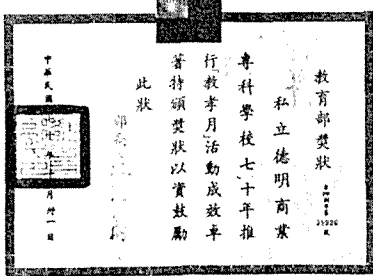 教育部獎狀
私立德明商業
專科學校七十年推
行「教孝月」活動成效卓
著特頒獎狀以資鼓勵
此狀
中華民國 年 月 卅一日